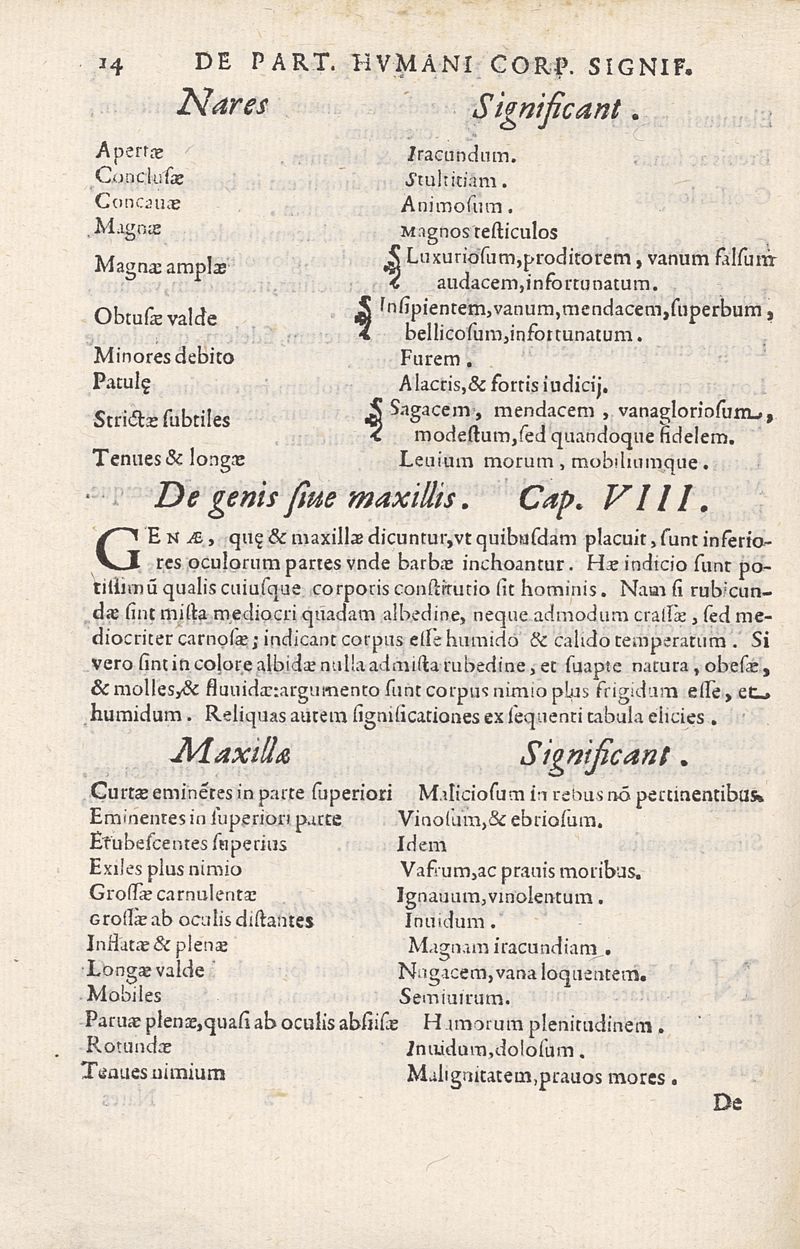 14 DE PART. HVMANI CORP. SIGNIF.
Nares Significant.
Apertæ Iracundum.
Concluſæ Stultitiam.
Concauæ Animoſum.
Magnæ Magnos teſticulos
Magnæ amplæ Luxurioſum, proditorem, vanum falſum
audacem, infortunatum.
Obtuſæ valde Inſipientem, vanum, mendacem, ſuperbum,
bellicoſum, infortunatum.
Minores debito Furem.
Patulę Alacris, & fortis iudicij.
Strictæ ſubtiles Sagacem, mendacem, vanaglorioſum,
modeſtum, ſed quandoque fidelem.
Tenues & longæ Leuium morum, mobiliumque.
De genis ſiue maxillis. Cap. VIII.
GENÆ, quę & maxillæ dicuntur, vt quibuſdam placuit, ſunt inferio-
res oculorum partes vnde barbæ inchoantur. Hæ indicio ſunt po-
tiſſimū qualis cuiuſque corporis conſtitutio ſit hominis. Nam ſi rubicun-
dæ ſint miſta mediocri quadam albedine, neque admodum craſſæ, ſed me-
diocriter carnoſæ; indicant corpus eſſe humido & calido temperatum. Si
vero ſint in colore albidæ nulla admiſta rubedine, et ſuapte natura, obeſæ,
& molles, & fluuidæ: argumento ſunt corpus nimio plus frigidum eſſe, et
humidum. Reliquas autem ſignificationes ex ſequenti tabula elicies.
Maxillæ Significant.
Curtæ eminētes in parte ſuperiori Malicioſum in rebus nō pertinentibus.
Eminentes in ſuperiori parte Vinoſum, & ebrioſum.
Erubeſcentes ſuperius Idem
Exiles plus nimio Vafrum, ac prauis moribus.
Groſſæ carnulentæ Ignauum, vinolentum.
Groſſæ ab oculis diſtantes Inuidum.
Inflatæ & plenæ Magnam iracundiam.
Longæ valde Nugacem, vana loquentem.
Mobiles Semiuirum.
Paruæ plenæ, quaſi ab oculis abſiiſæ Humorum plenitudinem.
Rotundæ Inuidum, doloſum.
Tenues nimium Malignitatem, prauos mores.
De